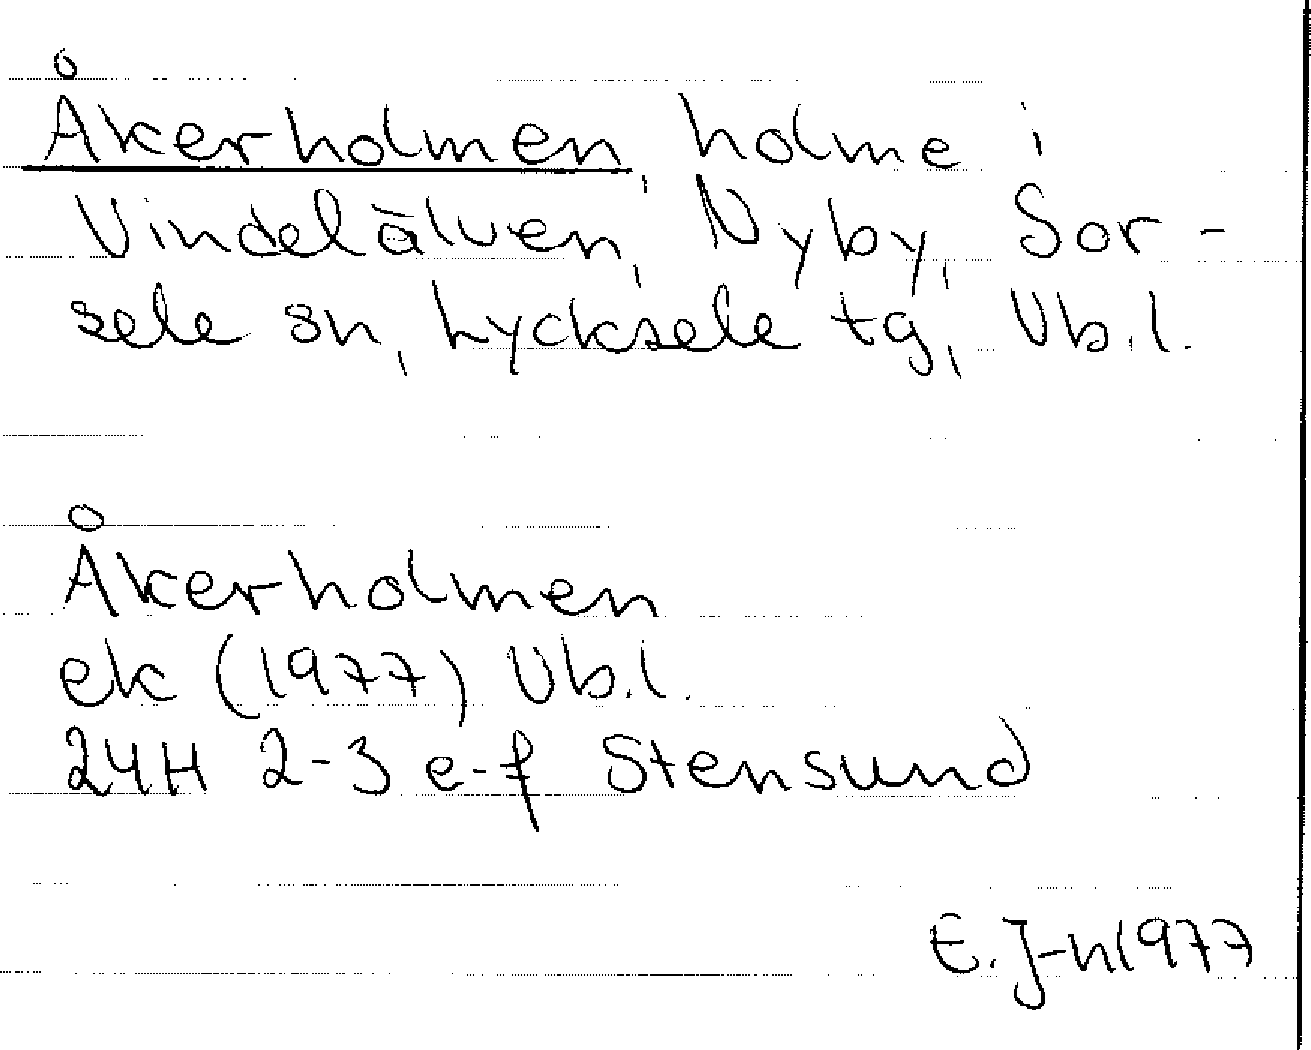 Åkerholmen, holme i
Vindelälven, Nyby, Sor-
sele sn, Lycksele tg, Vb.l.
Åkerholmen
ek (1977) Vb.l.
24H 2-3 e-f Stensund
E. J-n 1977